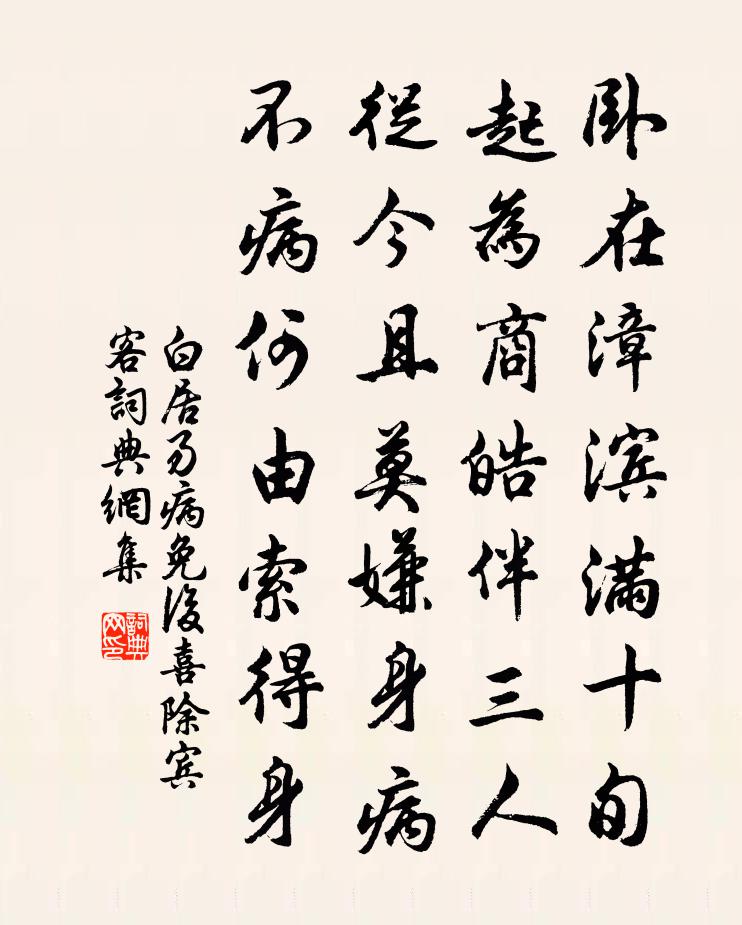 卧在漳滨满十旬
起為商皓伴三人
從今且莫嫌身病
不病何由索得身
白居易病免後喜除宾
客詞典網集
詞典
网印